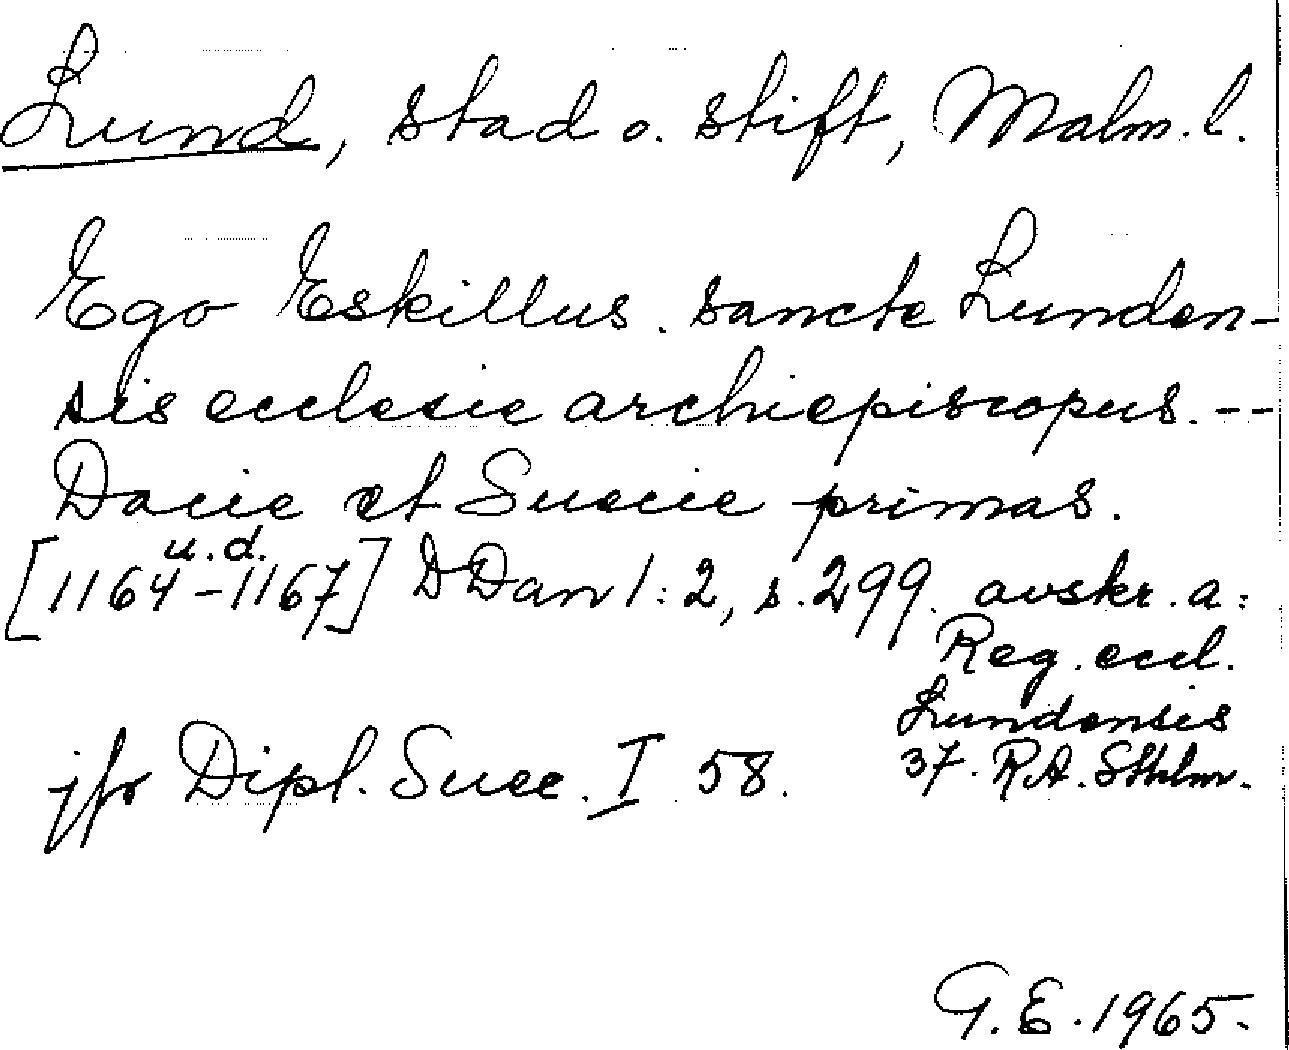 Lund, stad o. stift, Malm. l.
Ego Eskillus. sancte Lunden-
sis ecclesie archiepiscopus. --
Dacie et Suecie primas.
u. d.
[1164-1167] DDan 1:2, s. 299. avskr. a:
Reg. eccl.
Lundensis
37. RA. Sthlm.
jfr Dipl. Suec. I 58.
G. E. 1965.